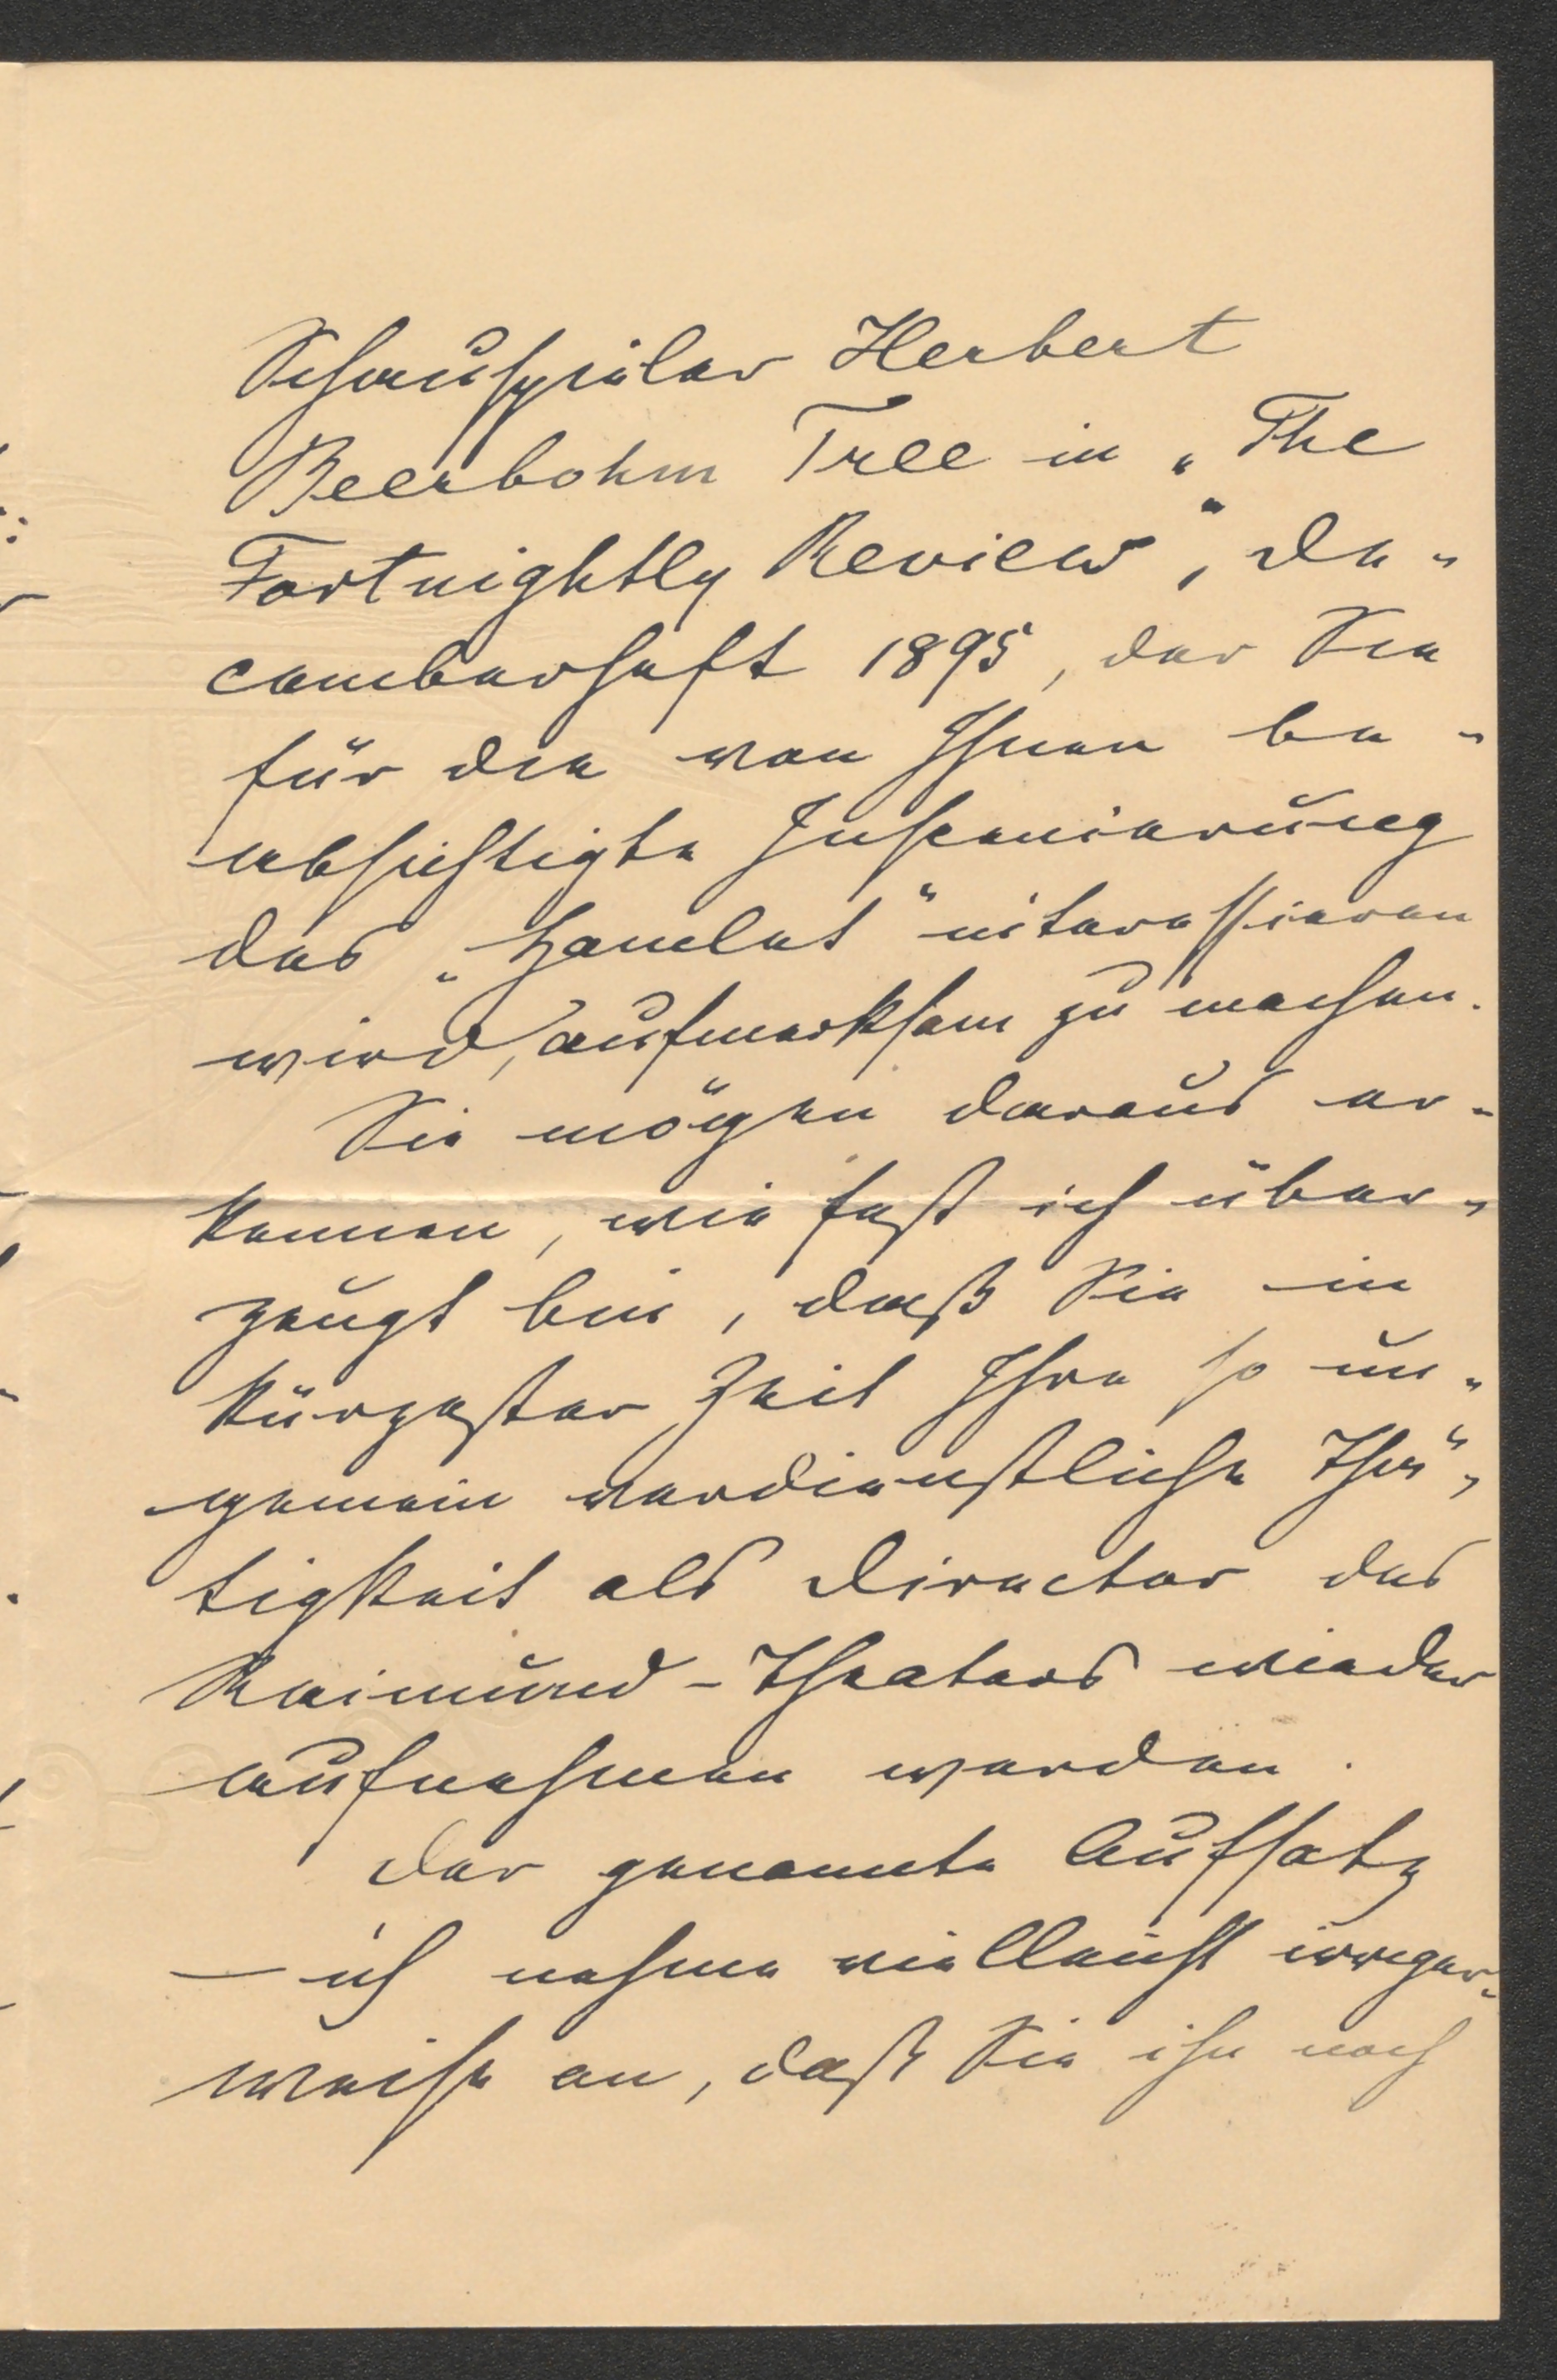 Schauspieler Herbert
Beerbohm Tree in „The
Fortnightly Review“, De-
cemberheft 1895, der Sie
für die von Ihnen be-
absichtigte Inscenierung
des „Hamlet“ interessieren
wird, aufmerksam zu machen.
Sie mögen daraus er-
kennen, wie fest ich über-
zeugt bin, daß Sie in
kürzester Zeit Ihre so un-
gemein verdienstliche Thä-
tigkeit als Director des
Raimund-Theaters wieder
aufnehmen werden.
Der genannte Aufsatz
— ich nehme vielleicht irriger-
weise an, daß Sie ihn noch